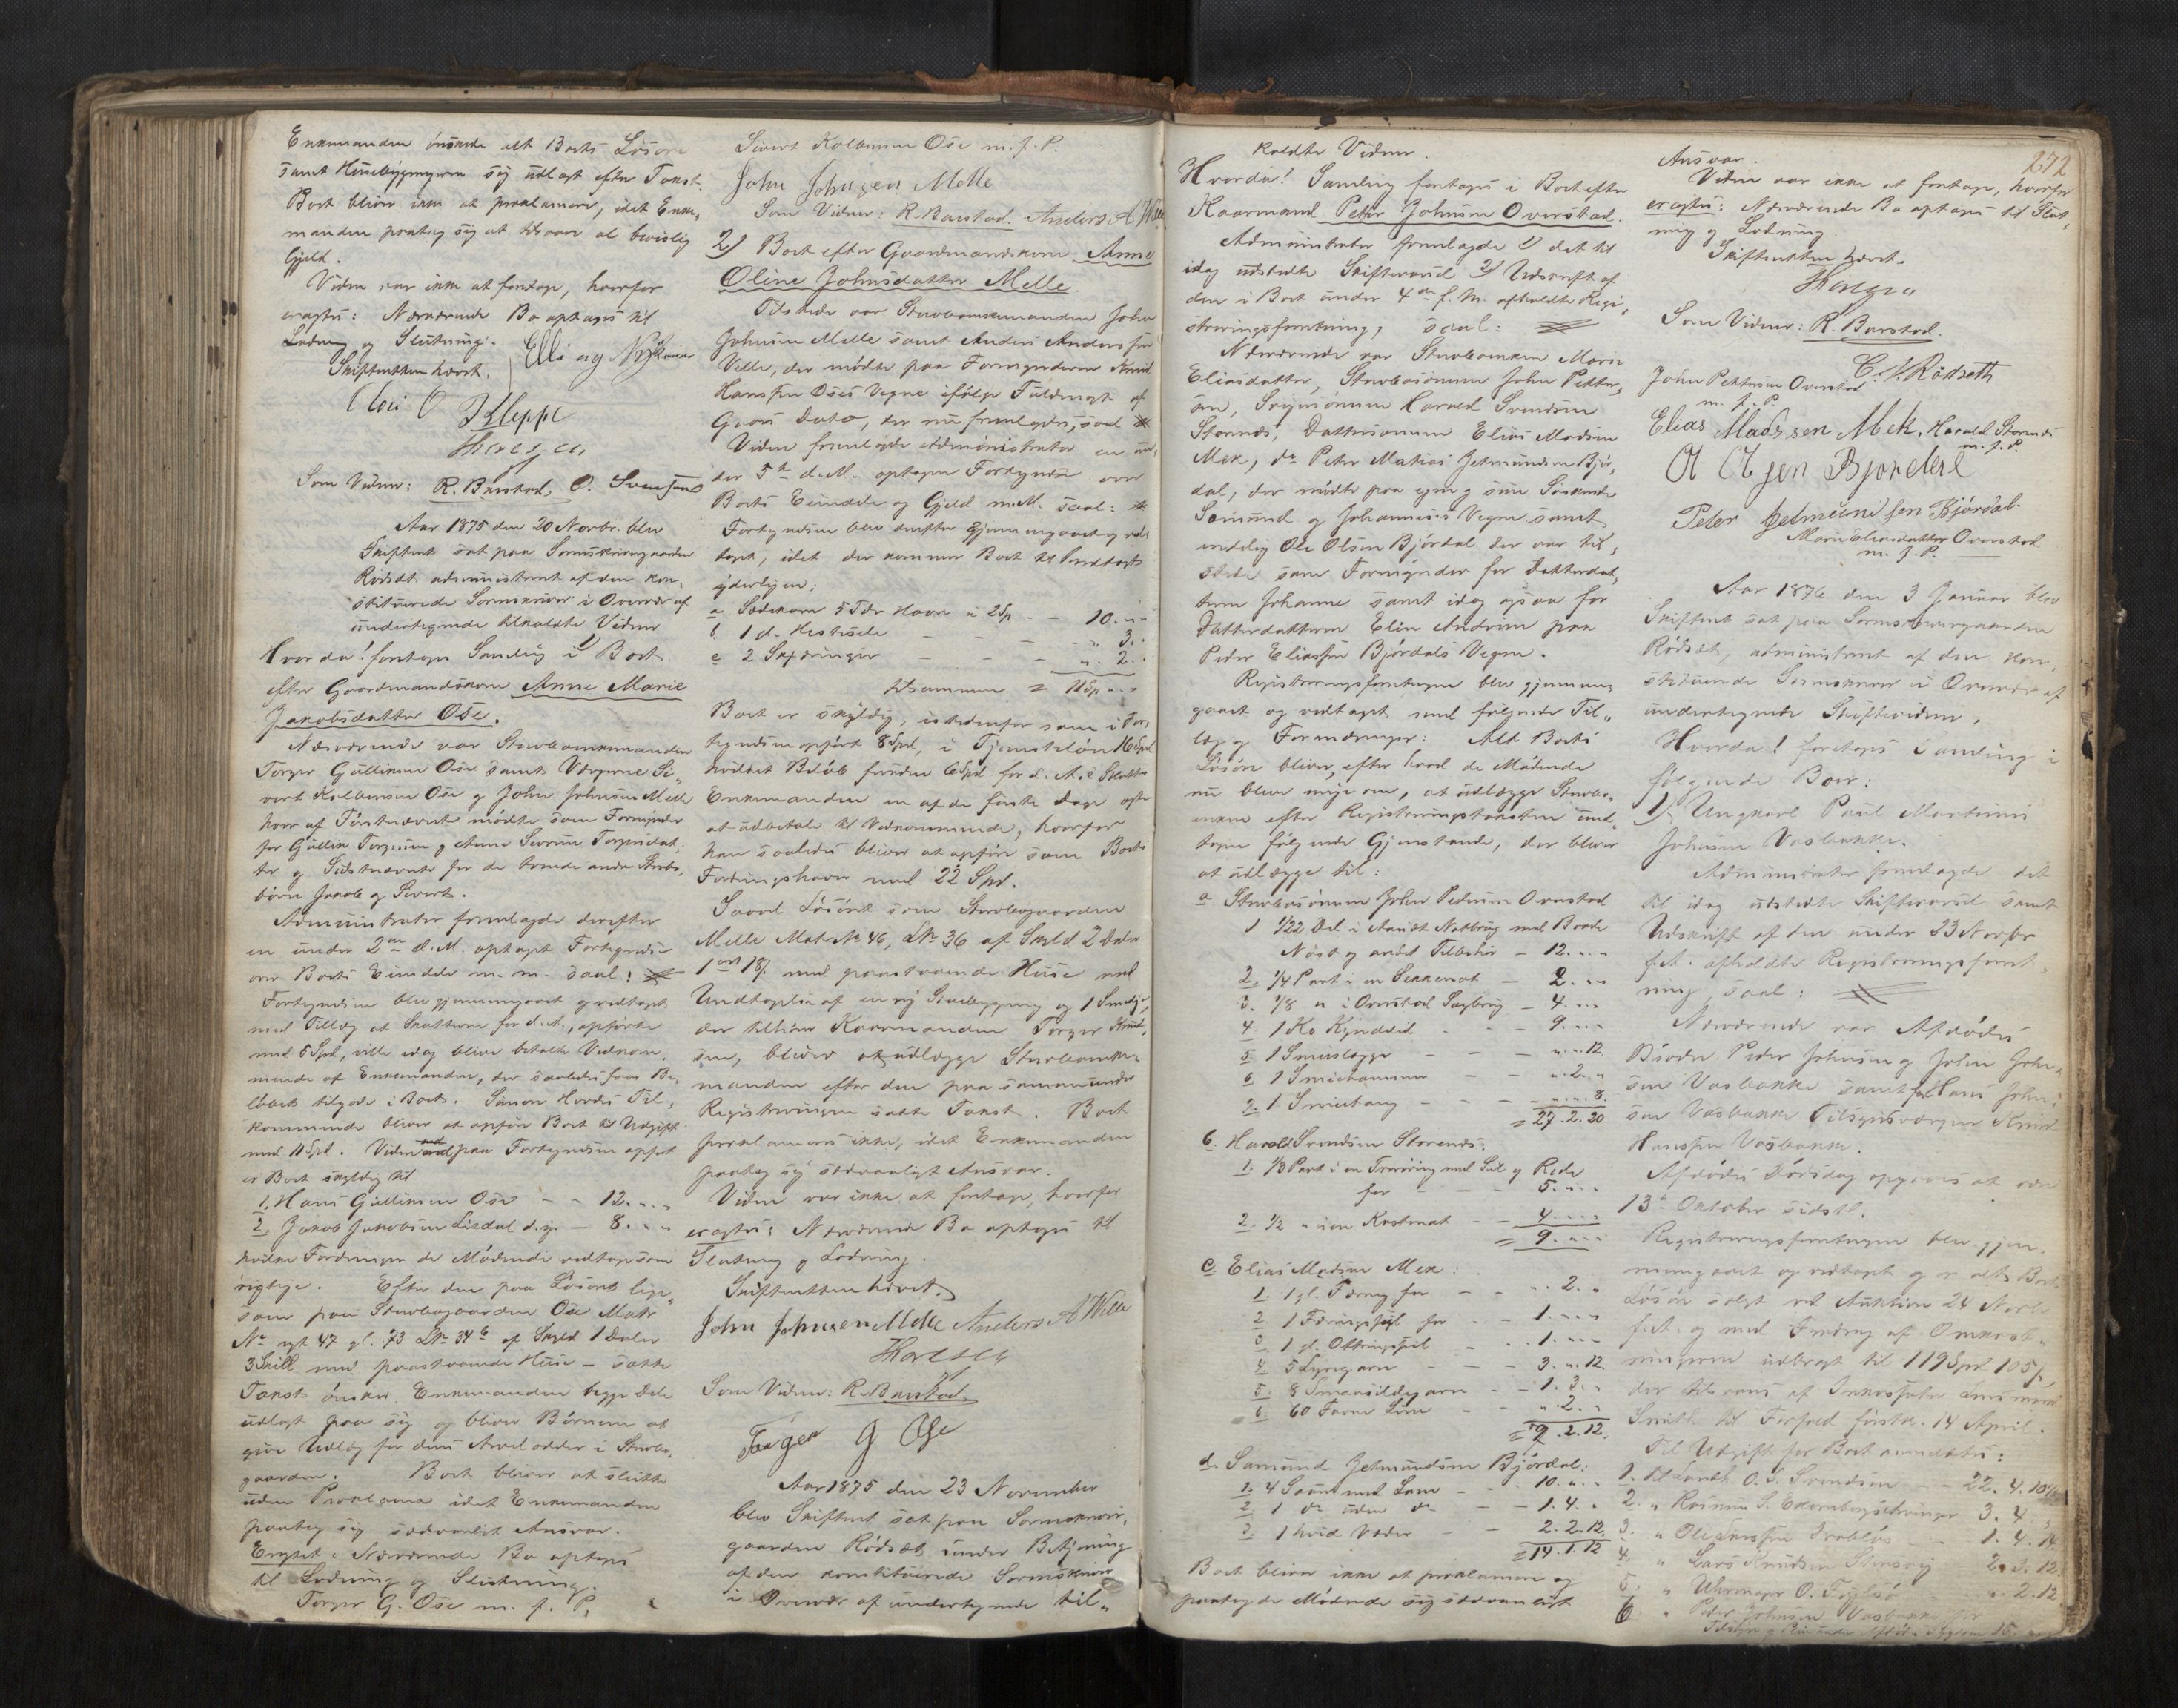 Enkemanden ønskede alt Boets Løsøre
samt Husebygningerne sig udlagt efter Taxst.
Boet bliver ikke at proklamere, idet Enke-
manden paatog sig at tilsvare al bevislig
Gjeld.
Videre var ikke at foretage, hvorfor
eragtes: Nærværende Bo optages til
Lodning og Slutning.
Skifteretten hævet. Elli og Nykrein
O Kleppe
Som Vidner: R. Barstad, O. Svensen
Aar 1875 den 20 Novbr. blev
Skifteret sat paa Sorenskrivergaarden
Rødsæt administreret af den kon-
stituerede Sorenskriver i Overvær af
undertegnede tilkaldte Vidner
Hvorda! foretages Samling i 1) Boet
efter Gaardmandskone Anne Marie
Jakobsdatter Ose.
Nærværende var Stervboenkemanden
Torger Gullikssen Ose samt Værgerne Si-
vert Kolbensen Ose og John Johnsen Melle
hvor af Førstnævnte mødte som Formynder
for Gullik Torgersen og Anne Severine Torgersdat-
ter og Sidstnævnte for de tvende andre Stervbo-
børn Jakob og Sivert.
Administrator fremlagde derefter
en under 2den d. M. optaget Fortegnelse
over Boets Eiendele m. m. saal:
Fortegnelsen blev gjennemgaaet og vedtaget
med Tillæg at Skatterne for d. A., opførte
med 5 Spd, ville idag blive betalte Vedkom-
mende af Enkemanden, der saaledes faar Be-
løbet tilgode i Boet. Simon Hovdes Til-
kommende bliver at opføre Boet til Udgift
med 11 Spd. Videre end paa Fortegnelsen opført
er Boet skyldig til
1. Hans Gullikssen Ose - - 12. " "
2. Jakob Jakobsen Liadal d. y. - 8. " "
hvilke Fordringer de Mødende vedtoge som
rigtige. Efter den paa Løsøret lige-
som paa Stervbogaarden Ose Matr
No nyt 47 gl. 73 LNo 34b af Skyld 1 Daler
3 Skill med paastaaende Huse – satte
Taxst ønsker Enkemanden begge Dele
udlagt paa sig og bliver Børnene at
give Udlæg for deres Arvelodder i Stervbo-
gaarden. Boet bliver at slutte
uden Proklama idet Enkemanden
paatog sig sædvanligt Ansvar.
Eragtet: Nærværende Bo optages
til Lodning og Slutning.
Torger G. Ose m. f. P.
Sivert Kolbensen Ose m. f. P.
John Johnsen Melle
Som Vidner: R. Barstad. Anders A Welle
2) Boet efter Gaardmandskone Anne
Oline Johnsdatter Melle.
Tilstede var Stervboenkemanden John
Johnsen Melle samt Anders Andersen
Velle, der mødte paa Formynderen Knud
Hanssen Oses Vegne ifølge Fuldmagt af
Gaars Dato, der nu fremlagdes, saal
Videre fremlagde Administrator en un-
der 5te d. M. optagen Fortegnelse over
Boets Eiendele og Gjeld m. M. saal:
Fortegnelsen blev derefter gjennemgaaet og ved-
taget, idet der kommer Boet til Indtægt
yderligere:
a Sædekorn 5 Tdr Havre à 2 Sp - - 10. " "
b. 1 gl. Hestesele - - - " 3. "
c 2 Skjæringer - - - " 2. "
tilsammen = 11 Sp " "
Boet er skyldig, istedenfor som i For-
tegnelsen opført 8 Spd, i Tjenesteløn 16 Spd
hvilket Beløb foruden 6 Spd for d. A.s Skatter
Enkemanden en af de første Dage agter
at udbetale til Vedkommende, hvorfor
han saaledes bliver at opføre som Boets
Fordringshaver med 22 Spd.
Saavel Løsøret som Stervbogaarden
Melle Mat No 46, LNo 36 af Skyld 2 Daler
1 ort 18 s. med paastaaende Huse med
Undtagelse af en ny Stuebygning og 1 Smedje,
der tilhører Kaarmanden Torger Knud-
sen, bliver at udlægge Stervboenke-
manden efter den paa samme under
Registreringen satte Taxst. Boet
proklameres ikke, idet Enkemanden
paatog sig sædvanligt Ansvar.
Videre var ikke at foretage, hvorfor
eragtes: Nærværende Bo optages til
Slutning og Lodning.
Skifteretten hævet.
John Johnsen Melle Anders A Welle
Som Vidner: R. Barstad
G Ose
Aar 1875 den 23 November
blev Skifteret sat paa Sorenskriver-
gaarden Rødsæt under Betjening
af den konstituerede Sorenskriver
i Overvær af undertegnede til-
kaldte Vidner.
Hvorda! Samling foretages i Boet efter
Kaarmand Peter Johnsen Overstad.
Administrator fremlagde 1) det til
idag udstedte Skiftevarsel 2) Udskrift af
den i Boet under 4de f. M. afholdte Regi-
streringsforretning, saal:
Nærværende var Stervboenken Maren
Eliasdatter, Stervbosønnen John Petter-
sen, Svigersønnen Harald Svendsen
Storenæs, Dattersønnen Elias Madssen
Mek, do Peter Matias Zetmundsen Bjør-
dal, der mødte paa egne og sine Søskende
Samund og Johannes's Vegne samt
endelig Ole Olsen Bjørdal der var til-
stede som Formynder for Datterdat-
teren Johanne samt idag ogsaa for
Datterdatteren Elen Andrine paa
Peder Eliassen Bjørdals Vegne.
Registreringsforretningen blev gjennem-
gaaet og vedtaget med følgende Til-
læg og Forandringer: Alt Boets
Løsøre bliver, efter hvad de Mødende
nu bleve enige om, at udlægge Stervbo-
enken efter Registreringstaxsten und-
tagen følgende Gjenstande, der bliver
at udlægge til:
a Stervbosønnen John Pedersen Overstad
1 1/22 Del i Notbrug med Baade
Nøst og andet Tilbehør - 12. " "
2. 1/4 Part i en Sekkenot - 2. " "
3. 1/8 " i Overstad Sagbrug - 4. " "
4. 1 Ko Kynddeil - - 9. " "
5. 1 Smieslegge - - - " " 12
6 1 Smiehammer - - " 2. "
7. 1 Smietang - - - " " 8
= 27. 2. 20
b. Harald Svendsen Storenæs:
1. 1/3 Part i en Treroring med Seil og Rede
for - - 5. " "
2. 1/2 " i en Kastenot - - 4. " "
= 9. " "
c. Elias Madssen Mek:
1. 1 gl. Færing for - - " 2. "
2 1 Færingsseil for - - 1. " "
3 1 gl. Ottringsseil - - 1. " "
4. 5 Lysegarn - - - 3. " 12
5. 8 Smaasildgarn - - 1. 3. "
6. 60 Favne Line - - " 2. "
= 9. 2. 12.
d. Samund Zetmundsen Bjørdal:
1. 4 Sauer med Lam - - 10. " "
2. 1 do uden do - - 1. 4. "
3. 1 hvid Væder - - 2. 2. 12
= 14. 1. 12
Boet bliver ikke at proklamere og
paatog de Mødende sig sædvanligt
272
Ansvar.
Videre var ikke at foretage, hvorfor
eragtes: Nærværende Bo optages til Slut-
ning og Lodning.
Skifteretten hævet.
Som Vidner: R. Barstad.
C. Rødseth
John Pettersen Overstad
m. f. P.
Elias Madssen Mek, Harald Storenæs
m. f. P.
Bjordal
Peter Zetmundsen Bjørdal.
Maren Eliasdatter Overstad
m. f. P.
Aar 1876 den 3 Januar blev
Skifteret sat paa Sorenskrivergaarden
Rødsæt, administreret af den kon-
stituerede Sorenskriver i Overvær af
undertegnede Skiftevidner.
Hvorda! foretages Samling i
følgende Boer:
1) Ungkarl Paul Martinus
Johnsen Vasbakke.
Administrator fremlagde det
til idag udstedte Skiftevarsel samt
Udskrift af den under 23 Novbr
f. A. afholdte Registreringsforret-
ning, saal:
Nærværende var Afdødes
Brødre Peder Johnsen og John John-
sen Vasbakke samt for Hans John-
sen Vasbakke Tilsynsværgen Knud
Hanssen Vasbakke.
Afdødes Dødsdag opgaves at være
13de Oktober sidstl.
Registreringsforretningen blev gjen-
nemgaaet og vedtaget og er alt Boets
Løsøre solgt ved Auktion 24 Novbr
f. A. og med Fradrag af Omkost-
ningerne udbragt til 119 Spd 105 s,
der tilsvares af Inkassator Lensmand
Smith til Forfald førstk. 14 April.
Til Udgift for Boet anmeldtes:
1. til Landh. O. S. Svendsen - - 22. 4. 10
2. " Rasmus S. 3. 4. "
3. " Ole 1. 4. 14
4. " Lars Knudsen 2. 3. 12
5. " Uhrmager O. " 2. 12
6. " Peder Johnsen Vasbakke for